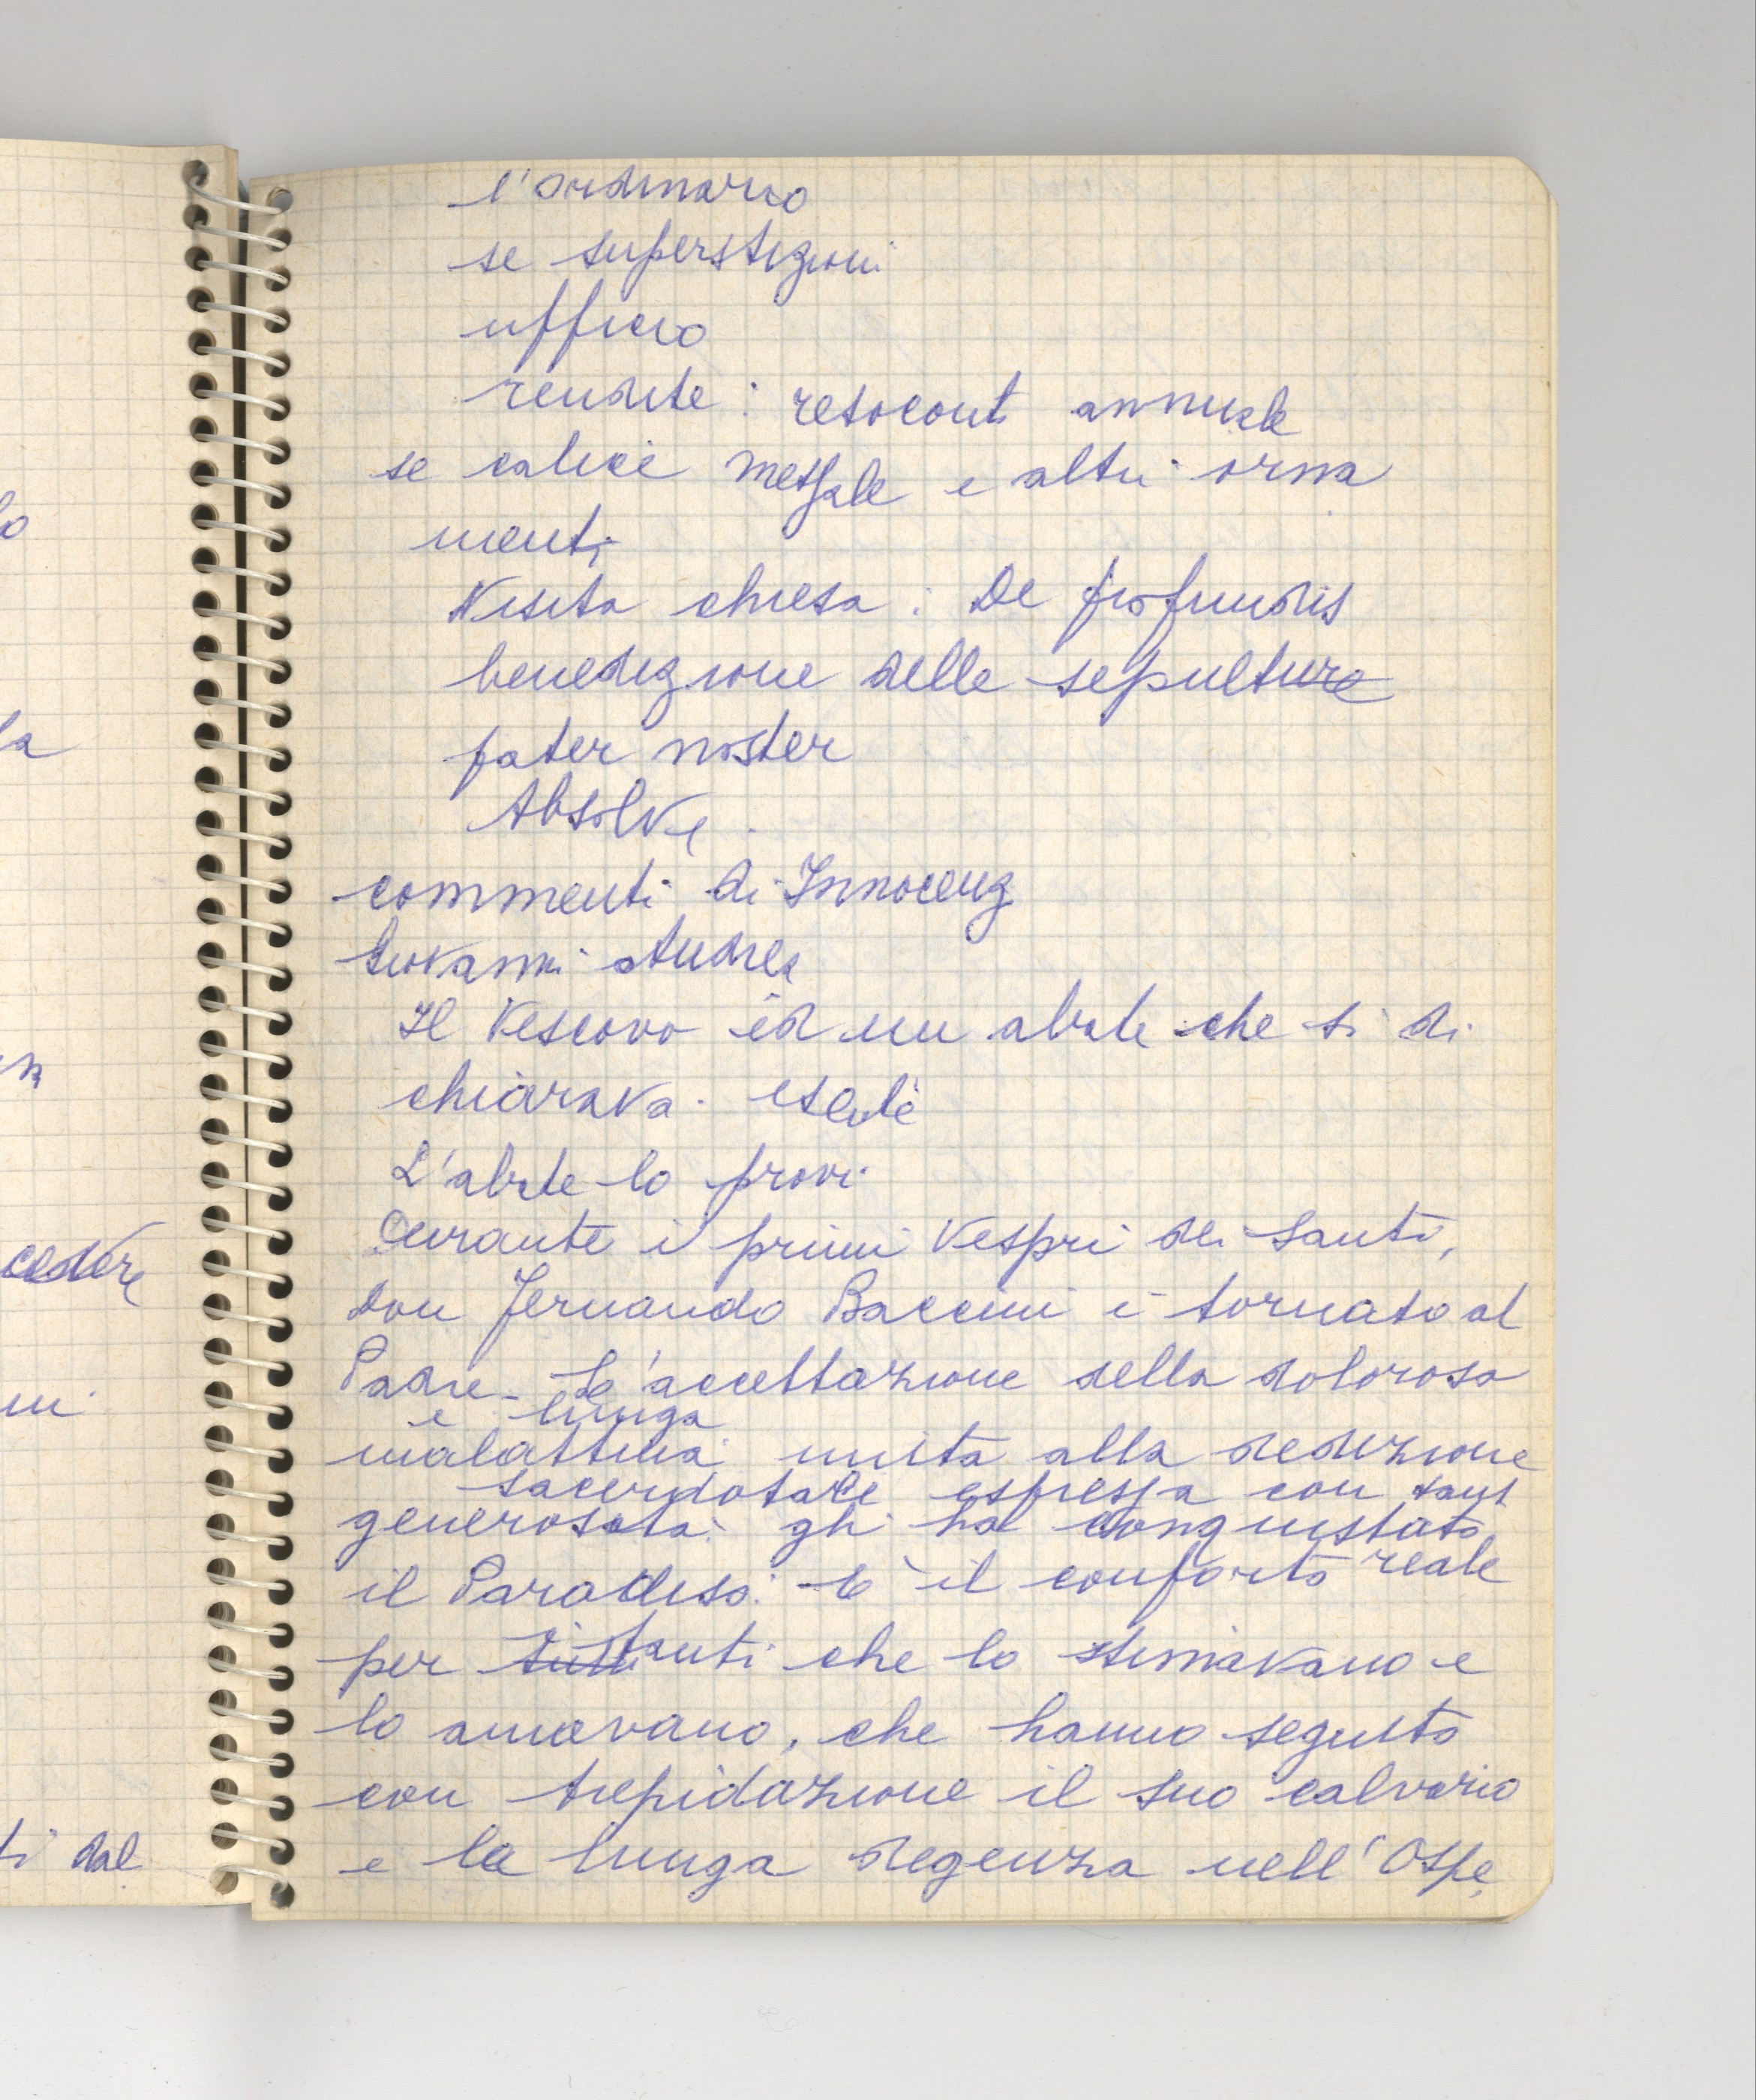 l'ordinario
se superstizioni
ufficio
rendite: resoconti annuale
se calice messale e altri orna
menti
Visita chiesa: De profundis
benedizione delle sepolture
pater noster
Absolve.
commenti di Innocenz
Giovanni Andrea
Il Vescovo ed un abate che si di
chiarava esente
L'abate lo provi
Durante i primi Vespri dei Santi,
don Fernando Baccini è tornato al
Padre - L'accettazione della dolorosa
e lunga
malattia unita alla dedizione
sacerdotale espressa con tant
generosità gli ha conquistato
il Paradiso. È il conforto reale
per tutti i tanti che lo stimavano e
lo amavano, che hanno seguito
con trepidazione il suo calvario
e la lunga degenza nell'Ospe
lo
la
cedere
ti dal